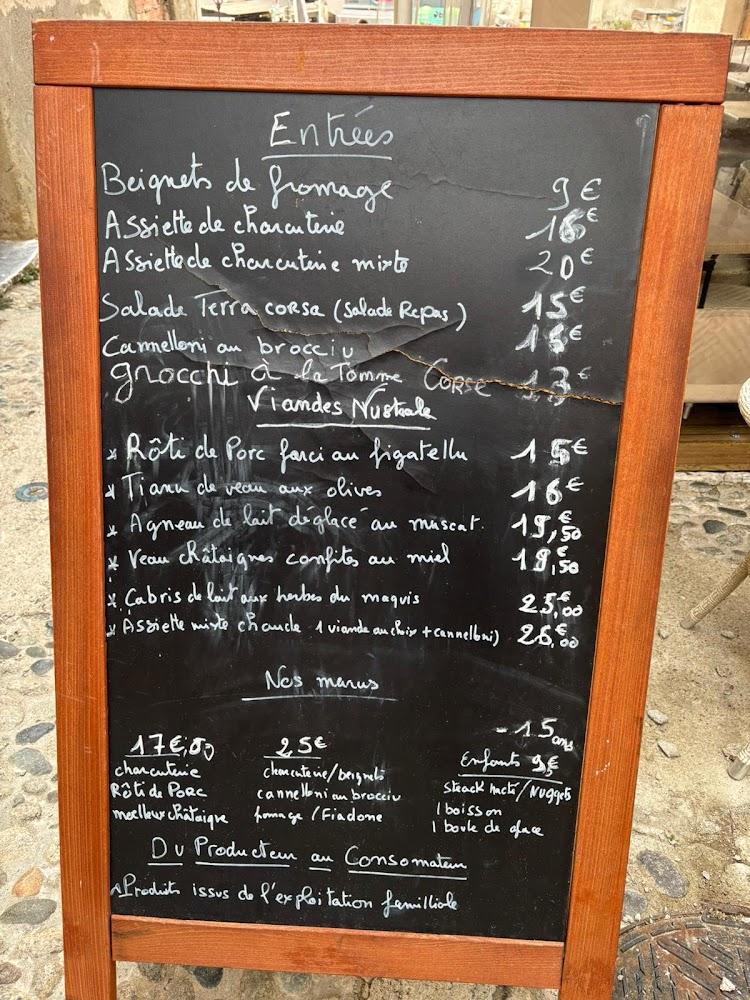 Entrées
Beignets de fromage 9€
Assiette de charcuterie 16€
Assiette de charcuterie mixte 20€
Salade Terra corsa (Salade Repas) 15€
Cannelloni au brocciu 16€
grocchi à la Tomme Corse 13€
Viandes Nustrale
* Rôti de Porc farci au figatellu 15€
* Tianu de veau aux olives 16€
* Agneau de lait déglacé au muscat 19,50€
* Veau châtaignes confites au miel 19,50€
* Cabris de lait aux herbes du maquis 25,00€
* Assiette mixte chaude 1 viande au choix + cannelloni) 26,00€
Nos menus
17€,00
charcuterie
Rôti de Porc
moelleux châtaigne
25€
charcuterie/beignets
cannelloni au brocciu
fromage / Fiadone
- 15 ans
Enfants 9€
steack haché/Nuggets
1 boisson
1 boule de glace
Du Producteur au Consomateur
*Produits issus de l'exploitation familliale